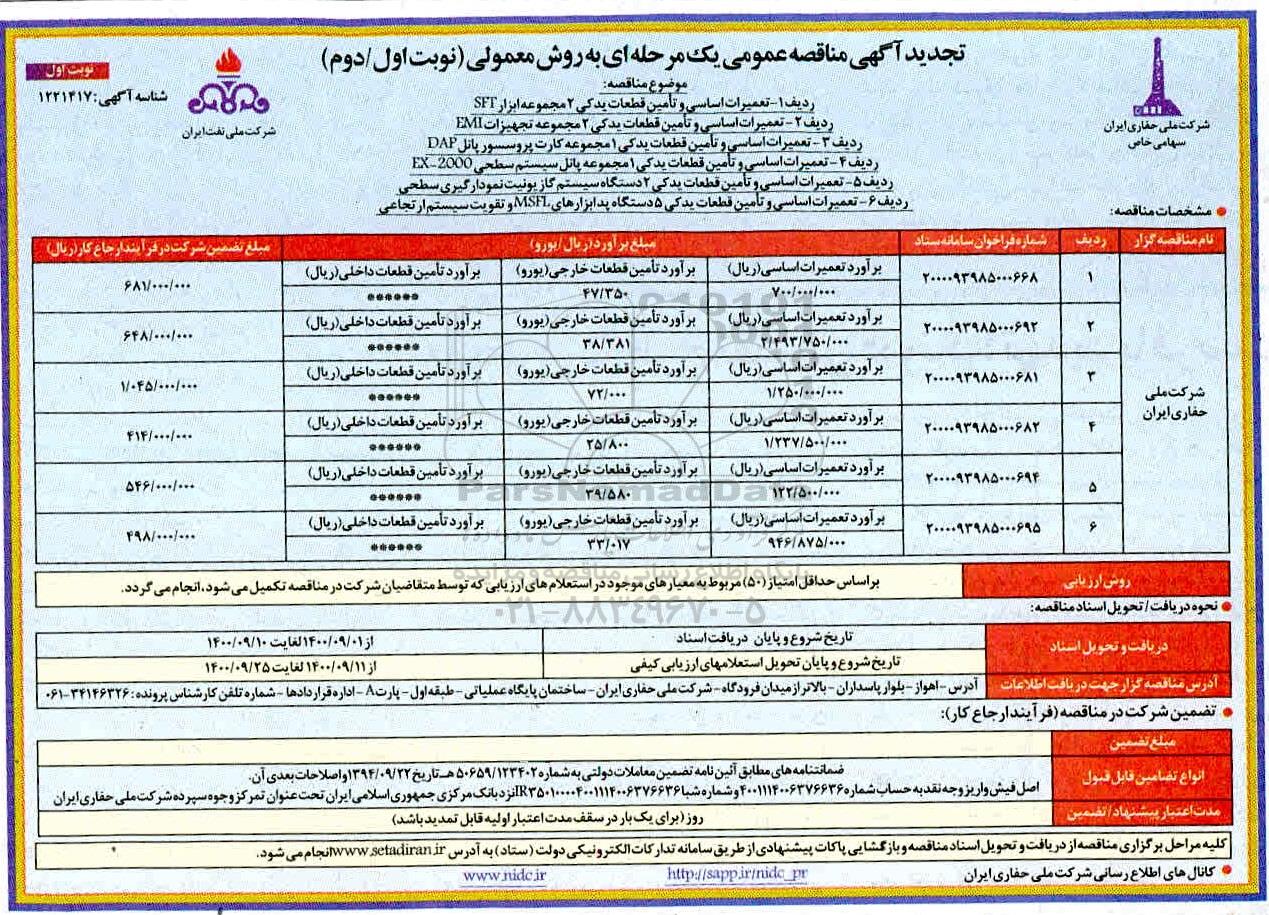 تجدید آگهی مناقصه عمومی یک مرحله ای به روش معمولی (نوبت اول/دوم)
نوبت اول
شناسه آگهی: ۱۲۲۱۴۱۷
شرکت ملی نفت ایران
شرکت ملی حفاری ایران
سهامی خاص
موضوع مناقصه:
ردیف ۱- تعمیرات اساسی و تأمین قطعات یدکی ۲ مجموعه ابزار SFT
ردیف ۲- تعمیرات اساسی و تأمین قطعات یدکی ۲ مجموعه تجهیزات EMI
ردیف ۳- تعمیرات اساسی و تأمین قطعات یدکی ۱ مجموعه کارت پروسسور پانل DAP
ردیف ۴- تعمیرات اساسی و تأمین قطعات یدکی ۱ مجموعه پانل سیستم سطحی EX-2000
ردیف ۵- تعمیرات اساسی و تأمین قطعات یدکی ۲ دستگاه سیستم گاز یونیت نمودارگیری سطحی
ردیف ۶- تعمیرات اساسی و تأمین قطعات یدکی ۵ دستگاه پد ابزارهای MSFL و تقویت سیستم ارتجاعی
مشخصات مناقصه:
نام مناقصه گزار ردیف شماره فراخوان سامانه ستاد مبلغ برآورد (ریال/یورو) مبلغ تضمین شرکت در فرآیند ارجاع کار (ریال)
شرکت ملی حفاری ایران
۱ ۲۰۰۰۰۹۳۹۸۵۰۰۰۶۶۸ برآورد تعمیرات اساسی (ریال) برآورد تأمین قطعات خارجی (یورو) برآورد تأمین قطعات داخلی (ریال) ۶۸۱/۰۰۰/۰۰۰
۷۰۰/۰۰۰/۰۰۰ ۴۷/۳۵۰ ******
۲ ۲۰۰۰۰۹۳۹۸۵۰۰۰۶۹۲ برآورد تعمیرات اساسی (ریال) برآورد تأمین قطعات خارجی (یورو) برآورد تأمین قطعات داخلی (ریال) ۶۴۸/۰۰۰/۰۰۰
۲/۴۹۳/۷۵۰/۰۰۰ ۳۸/۳۸۱ ******
۳ ۲۰۰۰۰۹۳۹۸۵۰۰۰۶۸۱ برآورد تعمیرات اساسی (ریال) برآورد تأمین قطعات خارجی (یورو) برآورد تأمین قطعات داخلی (ریال) ۱/۰۴۵/۰۰۰/۰۰۰
۱/۲۵۰/۰۰۰/۰۰۰ ۷۲/۰۰۰ ******
۴ ۲۰۰۰۰۹۳۹۸۵۰۰۰۶۸۲ برآورد تعمیرات اساسی (ریال) برآورد تأمین قطعات خارجی (یورو) برآورد تأمین قطعات داخلی (ریال) ۴۱۴/۰۰۰/۰۰۰
۱/۲۳۷/۵۰۰/۰۰۰ ۲۵/۸۰۰ ******
۵ ۲۰۰۰۰۹۳۹۸۵۰۰۰۶۹۴ برآورد تعمیرات اساسی (ریال) برآورد تأمین قطعات خارجی (یورو) برآورد تأمین قطعات داخلی (ریال) ۵۴۶/۰۰۰/۰۰۰
۱۲۲/۵۰۰/۰۰۰ ۳۹/۵۸۰ ******
۶ ۲۰۰۰۰۹۳۹۸۵۰۰۰۶۹۵ برآورد تعمیرات اساسی (ریال) برآورد تأمین قطعات خارجی (یورو) برآورد تأمین قطعات داخلی (ریال) ۴۹۸/۰۰۰/۰۰۰
۹۴۶/۸۷۵/۰۰۰ ۳۳/۰۱۷ ******
ParsNamadData
پایگاه اطلاع رسانی مناقصه و مزایده
۰۲۱-۸۸۳۴۹۶۷۰-۵
روش ارزیابی براساس حداقل امتیاز (۵۰) مربوط به معیارهای موجود در استعلام های ارزیابی که توسط متقاضیان شرکت در مناقصه تکمیل می شود، انجام می گردد.
نحوه دریافت/تحویل اسناد مناقصه:
دریافت و تحویل اسناد
تاریخ شروع و پایان دریافت اسناد از ۱۴۰۰/۰۹/۰۱ لغایت ۱۴۰۰/۰۹/۱۰
تاریخ شروع و پایان تحویل استعلامهای ارزیابی کیفی از ۱۴۰۰/۰۹/۱۱ لغایت ۱۴۰۰/۰۹/۲۵
آدرس مناقصه گزار جهت دریافت اطلاعات آدرس - اهواز - بلوار پاسداران - بالاتر از میدان فرودگاه - شرکت ملی حفاری ایران - ساختمان پایگاه عملیاتی - طبقه اول - پارت A - اداره قراردادها - شماره تلفن کارشناس پرونده: ۳۴۱۴۶۳۲۶-۰۶۱
تضمین شرکت در مناقصه (فرآیند ارجاع کار):
مبلغ تضمین
انواع تضامین قابل قبول
ضمانتنامه های مطابق آئین نامه تضمین معاملات دولتی به شماره ۵۰۶۵۹/۱۲۳۴۰۲ هـ تاریخ ۱۳۹۴/۰۹/۲۲ و اصلاحات بعدی آن.
اصل فیش واریز وجه نقد به حساب شماره ۴۰۰۱۱۱۴۰۰۶۳۷۶۶۳۶ و شماره شبا IR۳۵۰۱۰۰۰۰۴۰۰۱۱۱۴۰۰۶۳۷۶۶۳۶ نزد بانک مرکزی جمهوری اسلامی ایران تحت عنوان تمرکز وجوه سپرده شرکت ملی حفاری ایران
مدت اعتبار پیشنهاد/تضمین روز (برای یک بار در سقف مدت اعتبار اولیه قابل تمدید باشد)
کلیه مراحل برگزاری مناقصه از دریافت و تحویل اسناد مناقصه و بازگشایی پاکات پیشنهادی از طریق سامانه تدارکات الکترونیکی دولت (ستاد) به آدرس www.setadiran.ir انجام می شود.
کانال های اطلاع رسانی شرکت ملی حفاری ایران http://sapp.ir/nidc_pr www.nidc.ir